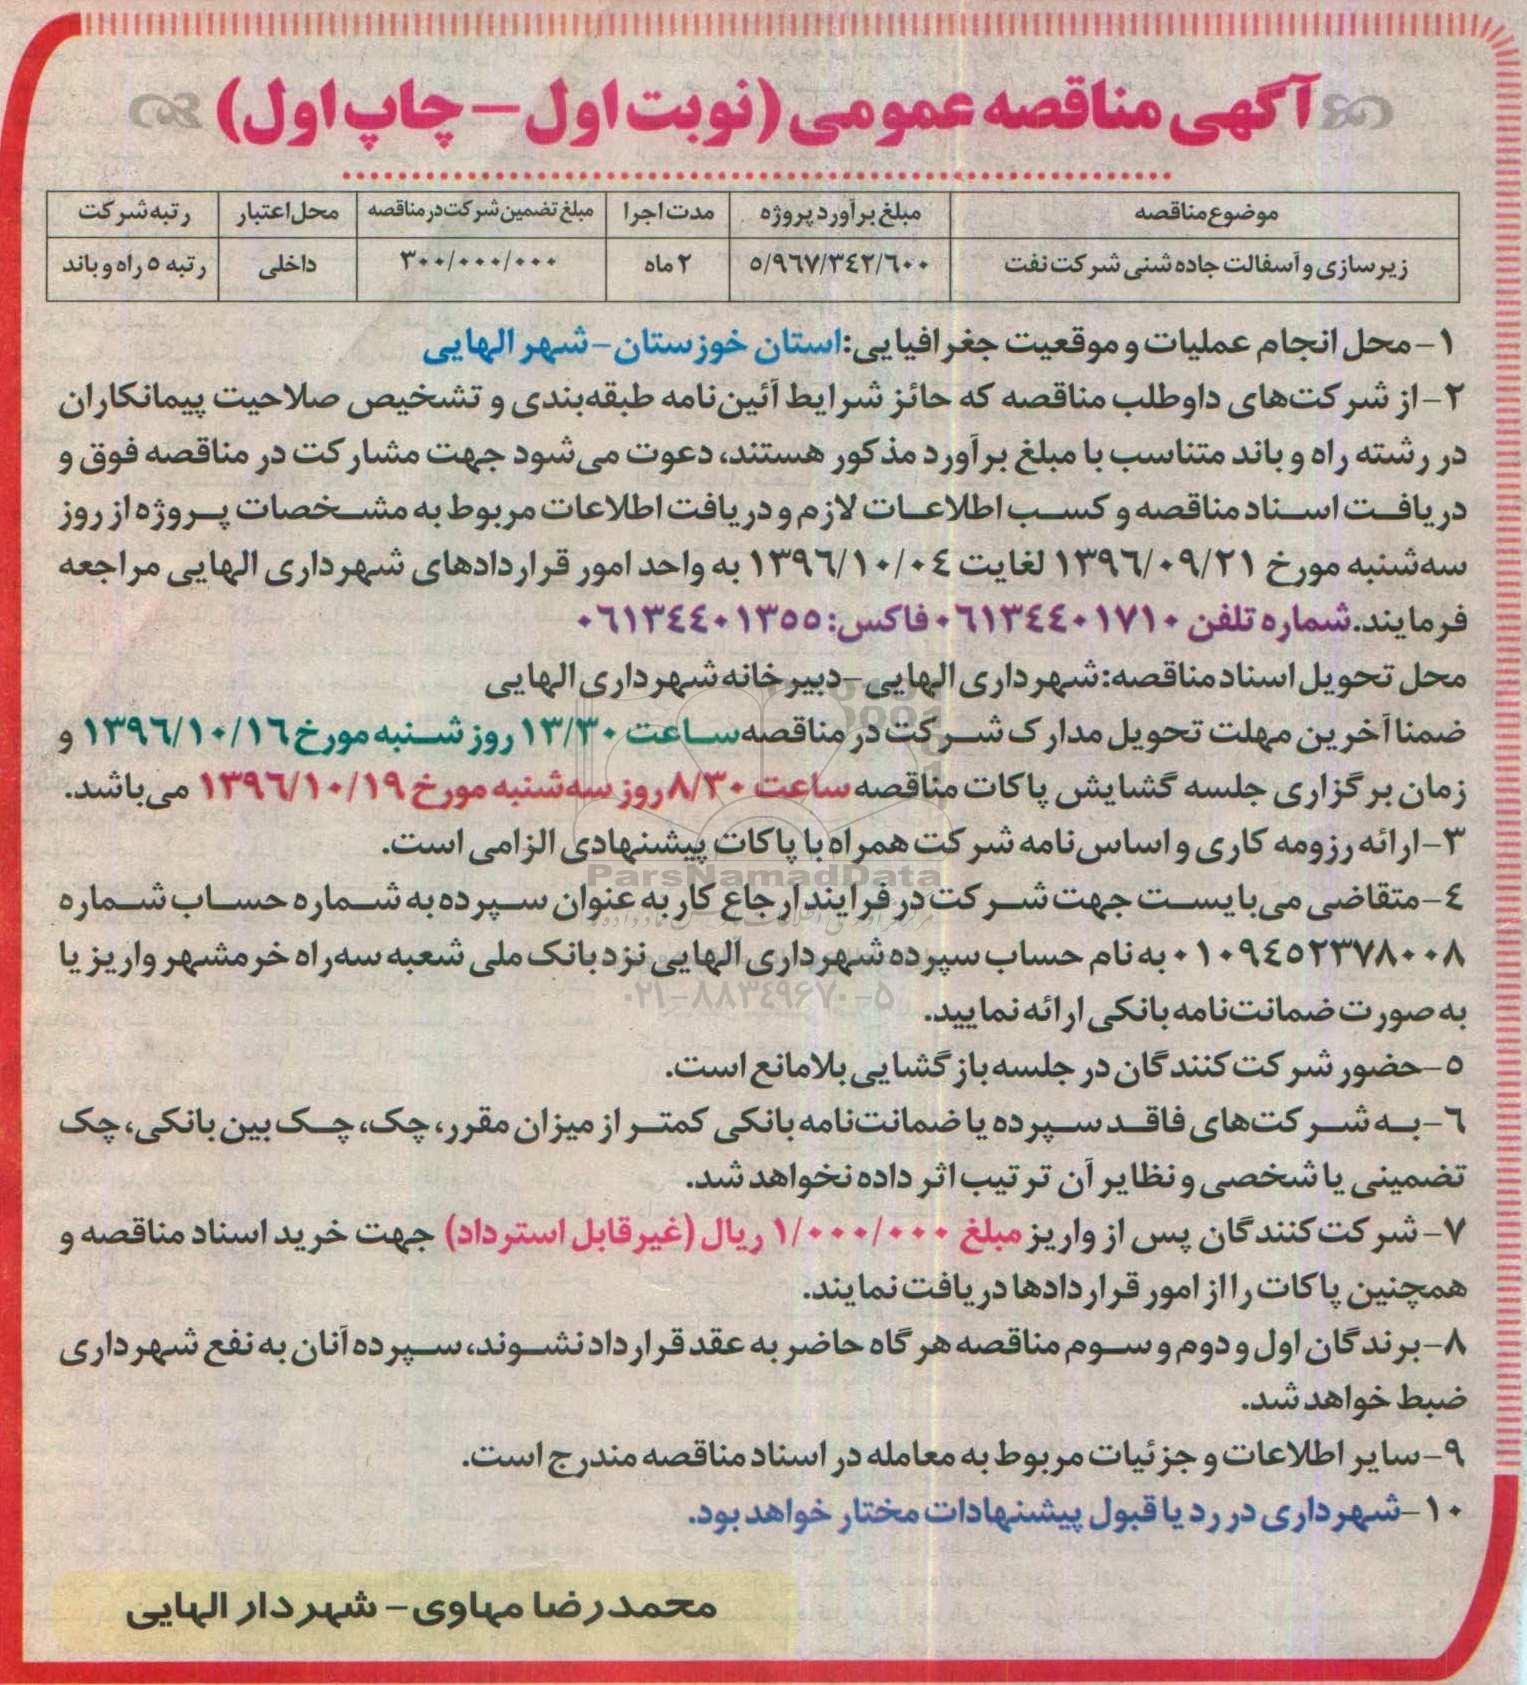 آگهی مناقصه عمومی (نوبت اول – چاپ اول)
موضوع مناقصه | مبلغ برآورد پروژه | مدت اجرا | مبلغ تضمین شرکت در مناقصه | محل اعتبار | رتبه شرکت
زیرسازی و آسفالت جاده شنی شرکت نفت | ۵/۹۶۷/۳۴۲/۶۰۰ | ۲ ماه | ۳۰۰/۰۰۰/۰۰۰ | داخلی | رتبه ۵ راه و باند
۱- محل انجام عملیات و موقعیت جغرافیایی: استان خوزستان - شهر الهایی
۲- از شرکت‌های داوطلب مناقصه که حائز شرایط آئین‌نامه طبقه‌بندی و تشخیص صلاحیت پیمانکاران
در رشته راه و باند متناسب با مبلغ برآورد مذکور هستند، دعوت می‌شود جهت مشارکت در مناقصه فوق و
دریافت اسناد مناقصه و کسب اطلاعات لازم و دریافت اطلاعات مربوط به مشخصات پروژه از روز
سه‌شنبه مورخ ۱۳۹۶/۰۹/۲۱ لغایت ۱۳۹۶/۱۰/۰۴ به واحد امور قراردادهای شهرداری الهایی مراجعه
فرمایند. شماره تلفن ۰۶۱۳۴۴۰۱۷۱۰ فاکس: ۰۶۱۳۴۴۰۱۳۵۵
محل تحویل اسناد مناقصه: شهرداری الهایی - دبیرخانه شهرداری الهایی
ضمنا آخرین مهلت تحویل مدارک شرکت در مناقصه ساعت ۱۳/۳۰ روز شنبه مورخ ۱۳۹۶/۱۰/۱۶ و
زمان برگزاری جلسه گشایش پاکات مناقصه ساعت ۸/۳۰ روز سه‌شنبه مورخ ۱۳۹۶/۱۰/۱۹ می‌باشد.
۳- ارائه رزومه کاری و اساس‌نامه شرکت همراه با پاکات پیشنهادی الزامی است.
ParsNamadData
۴- متقاضی می‌بایست جهت شرکت در فرایند ارجاع کار به عنوان سپرده به شماره حساب شماره
۰۱۰۹۴۵۲۳۷۸۰۰۸ به نام حساب سپرده شهرداری الهایی نزد بانک ملی شعبه سه‌راه خرمشهر واریز یا
۰۲۱-۸۸۳۴۹۶۷۰-۵
به صورت ضمانت‌نامه بانکی ارائه نمایید.
۵- حضور شرکت‌کنندگان در جلسه بازگشایی بلامانع است.
۶- به شرکت‌های فاقد سپرده یا ضمانت‌نامه بانکی کمتر از میزان مقرر، چک، چک بین بانکی، چک
تضمینی یا شخصی و نظایر آن ترتیب اثر داده نخواهد شد.
۷- شرکت‌کنندگان پس از واریز مبلغ ۱/۰۰۰/۰۰۰ ریال (غیرقابل استرداد) جهت خرید اسناد مناقصه و
همچنین پاکات را از امور قراردادها دریافت نمایند.
۸- برندگان اول و دوم و سوم مناقصه هرگاه حاضر به عقد قرارداد نشوند، سپرده آنان به نفع شهرداری
ضبط خواهد شد.
۹- سایر اطلاعات و جزئیات مربوط به معامله در اسناد مناقصه مندرج است.
۱۰- شهرداری در رد یا قبول پیشنهادات مختار خواهد بود.
محمدرضا مهاوی - شهردار الهایی